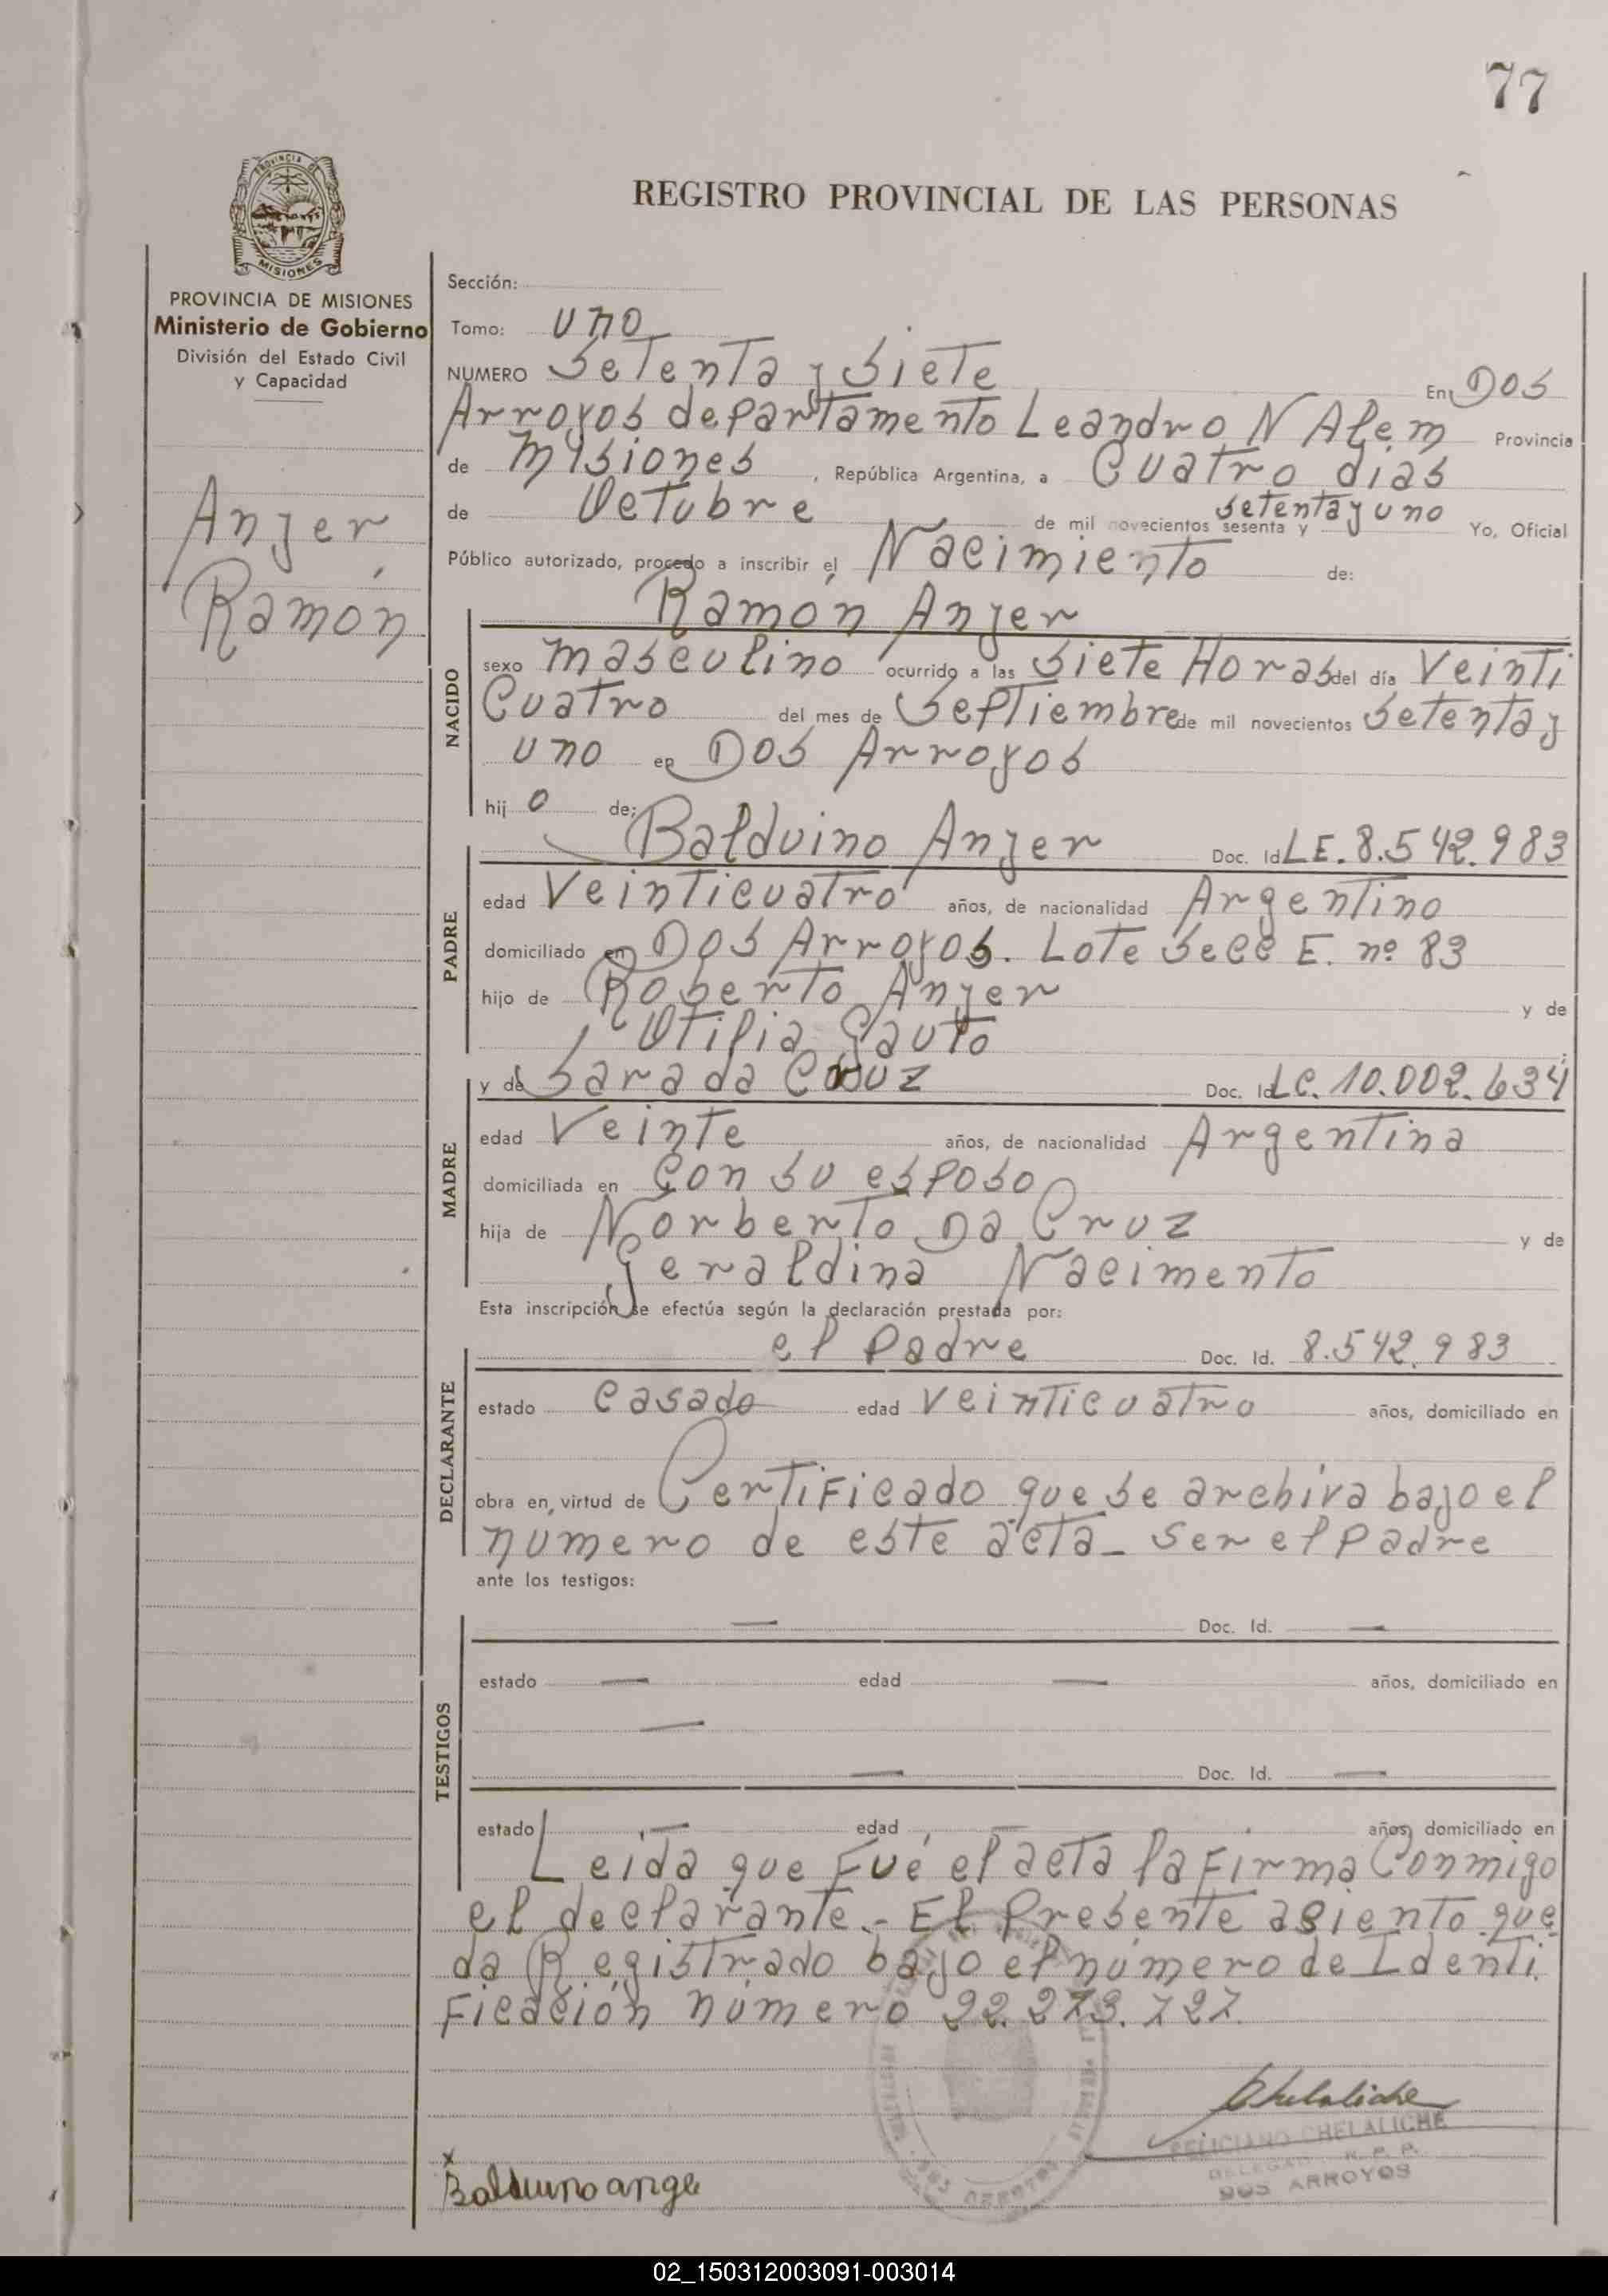 77
PROVINCIA DE
MISIONES
REGISTRO PROVINCIAL DE LAS PERSONAS
PROVINCIA DE MISIONES
Ministerio de Gobierno
División del Estado Civil
y Capacidad
Anger
Ramón
Sección:
Tomo: uno
NUMERO Setenta y Siete En Dos
Arroyos departamento Leandro N Alem Provincia
de Misiones, República Argentina, a Cuatro días
de Octubre de mil novecientos sesenta y setenta y uno Yo, Oficial
Público autorizado, procedo a inscribir el Nacimiento de:
Ramón Anger
NACIDO
sexo Masculino ocurrido a las Siete Horas del día Veinti
Cuatro del mes de Septiembre de mil novecientos Setenta y
uno en Dos Arroyos
hij o de:
Balduino Anger Doc. Id LE. 8.542.983
PADRE
edad Veinticuatro años, de nacionalidad Argentino
domiciliado en Dos Arroyos. Lote Secc E. nº 83
hijo de Roberto Anger y de
Otilia Gauto
y de Sara da Cruz Doc. Id LC. 10.002.634
MADRE
edad Veinte años, de nacionalidad Argentina
domiciliada en Con su esposo
hija de Norberto Da Cruz y de
Geraldina Nacimento
Esta inscripción se efectúa según la declaración prestada por:
el Padre Doc. Id. 8.542.983
DECLARANTE
estado casado edad Veinticuatro años, domiciliado en
obra en virtud de Certificado que se archiva bajo el
número de este acta - ser el Padre
ante los testigos:
— Doc. Id. —
TESTIGOS
estado — edad — años, domiciliado en
—
— Doc. Id. —
estado — edad — años, domiciliado en
Leída que Fué el acta la Firma Conmigo
el declarante.- El Presente asiento que
da Registrado bajo el número de Identi
Ficación número 22.273.727.
Chelaliche
FELICIANO CHELALICHE
DELEGADO R. P. P.
DOS ARROYOS
x
Balduino ange
02_150312003091-003014